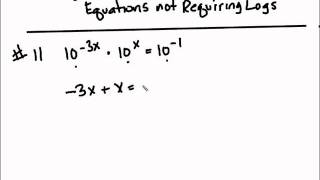 Equations not Requiring Logs
# 11 10^{-3x} · 10^{x} = 10^{-1}
-3x + x =